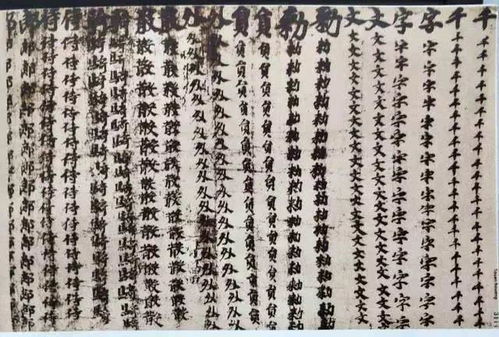 千千千千千千千千千千千千千千千千千千
千千千千千千千千千千千千千千千千千千
字字字字字字字字字字字字字字字字字
字字字字字字字字字字字字字字字字字字
文文文文文文文文文文文文文文文文文文
文文文文文文文文文文文文文文文文文文
勅勅勅勅勅勅勅勅勅勅勅勅勅勅勅勅
勅勅勅勅勅勅勅勅勅勅勅勅勅勅勅勅勅
員員員員員員員員員員員員員員員員員
員員員員員員員員員員員員員員員員
外外外外外外外外外外外外外外外外外
外外外外外外外外外外外外外外外外
散散散散散散散散散散散散散散散散
散散散散散散散散散散散散散散散散
騎騎騎騎騎騎騎騎騎騎騎騎騎騎騎騎
騎騎騎騎騎騎騎騎騎騎騎騎騎騎騎騎
侍侍侍侍侍侍侍侍侍侍侍侍侍侍侍侍侍
侍侍侍侍侍侍侍侍侍侍侍侍侍侍侍侍侍
郎郎郎郎郎郎郎郎郎郎郎郎郎郎郎郎
郎郎郎郎郎郎郎郎郎郎郎郎郎郎郎郎